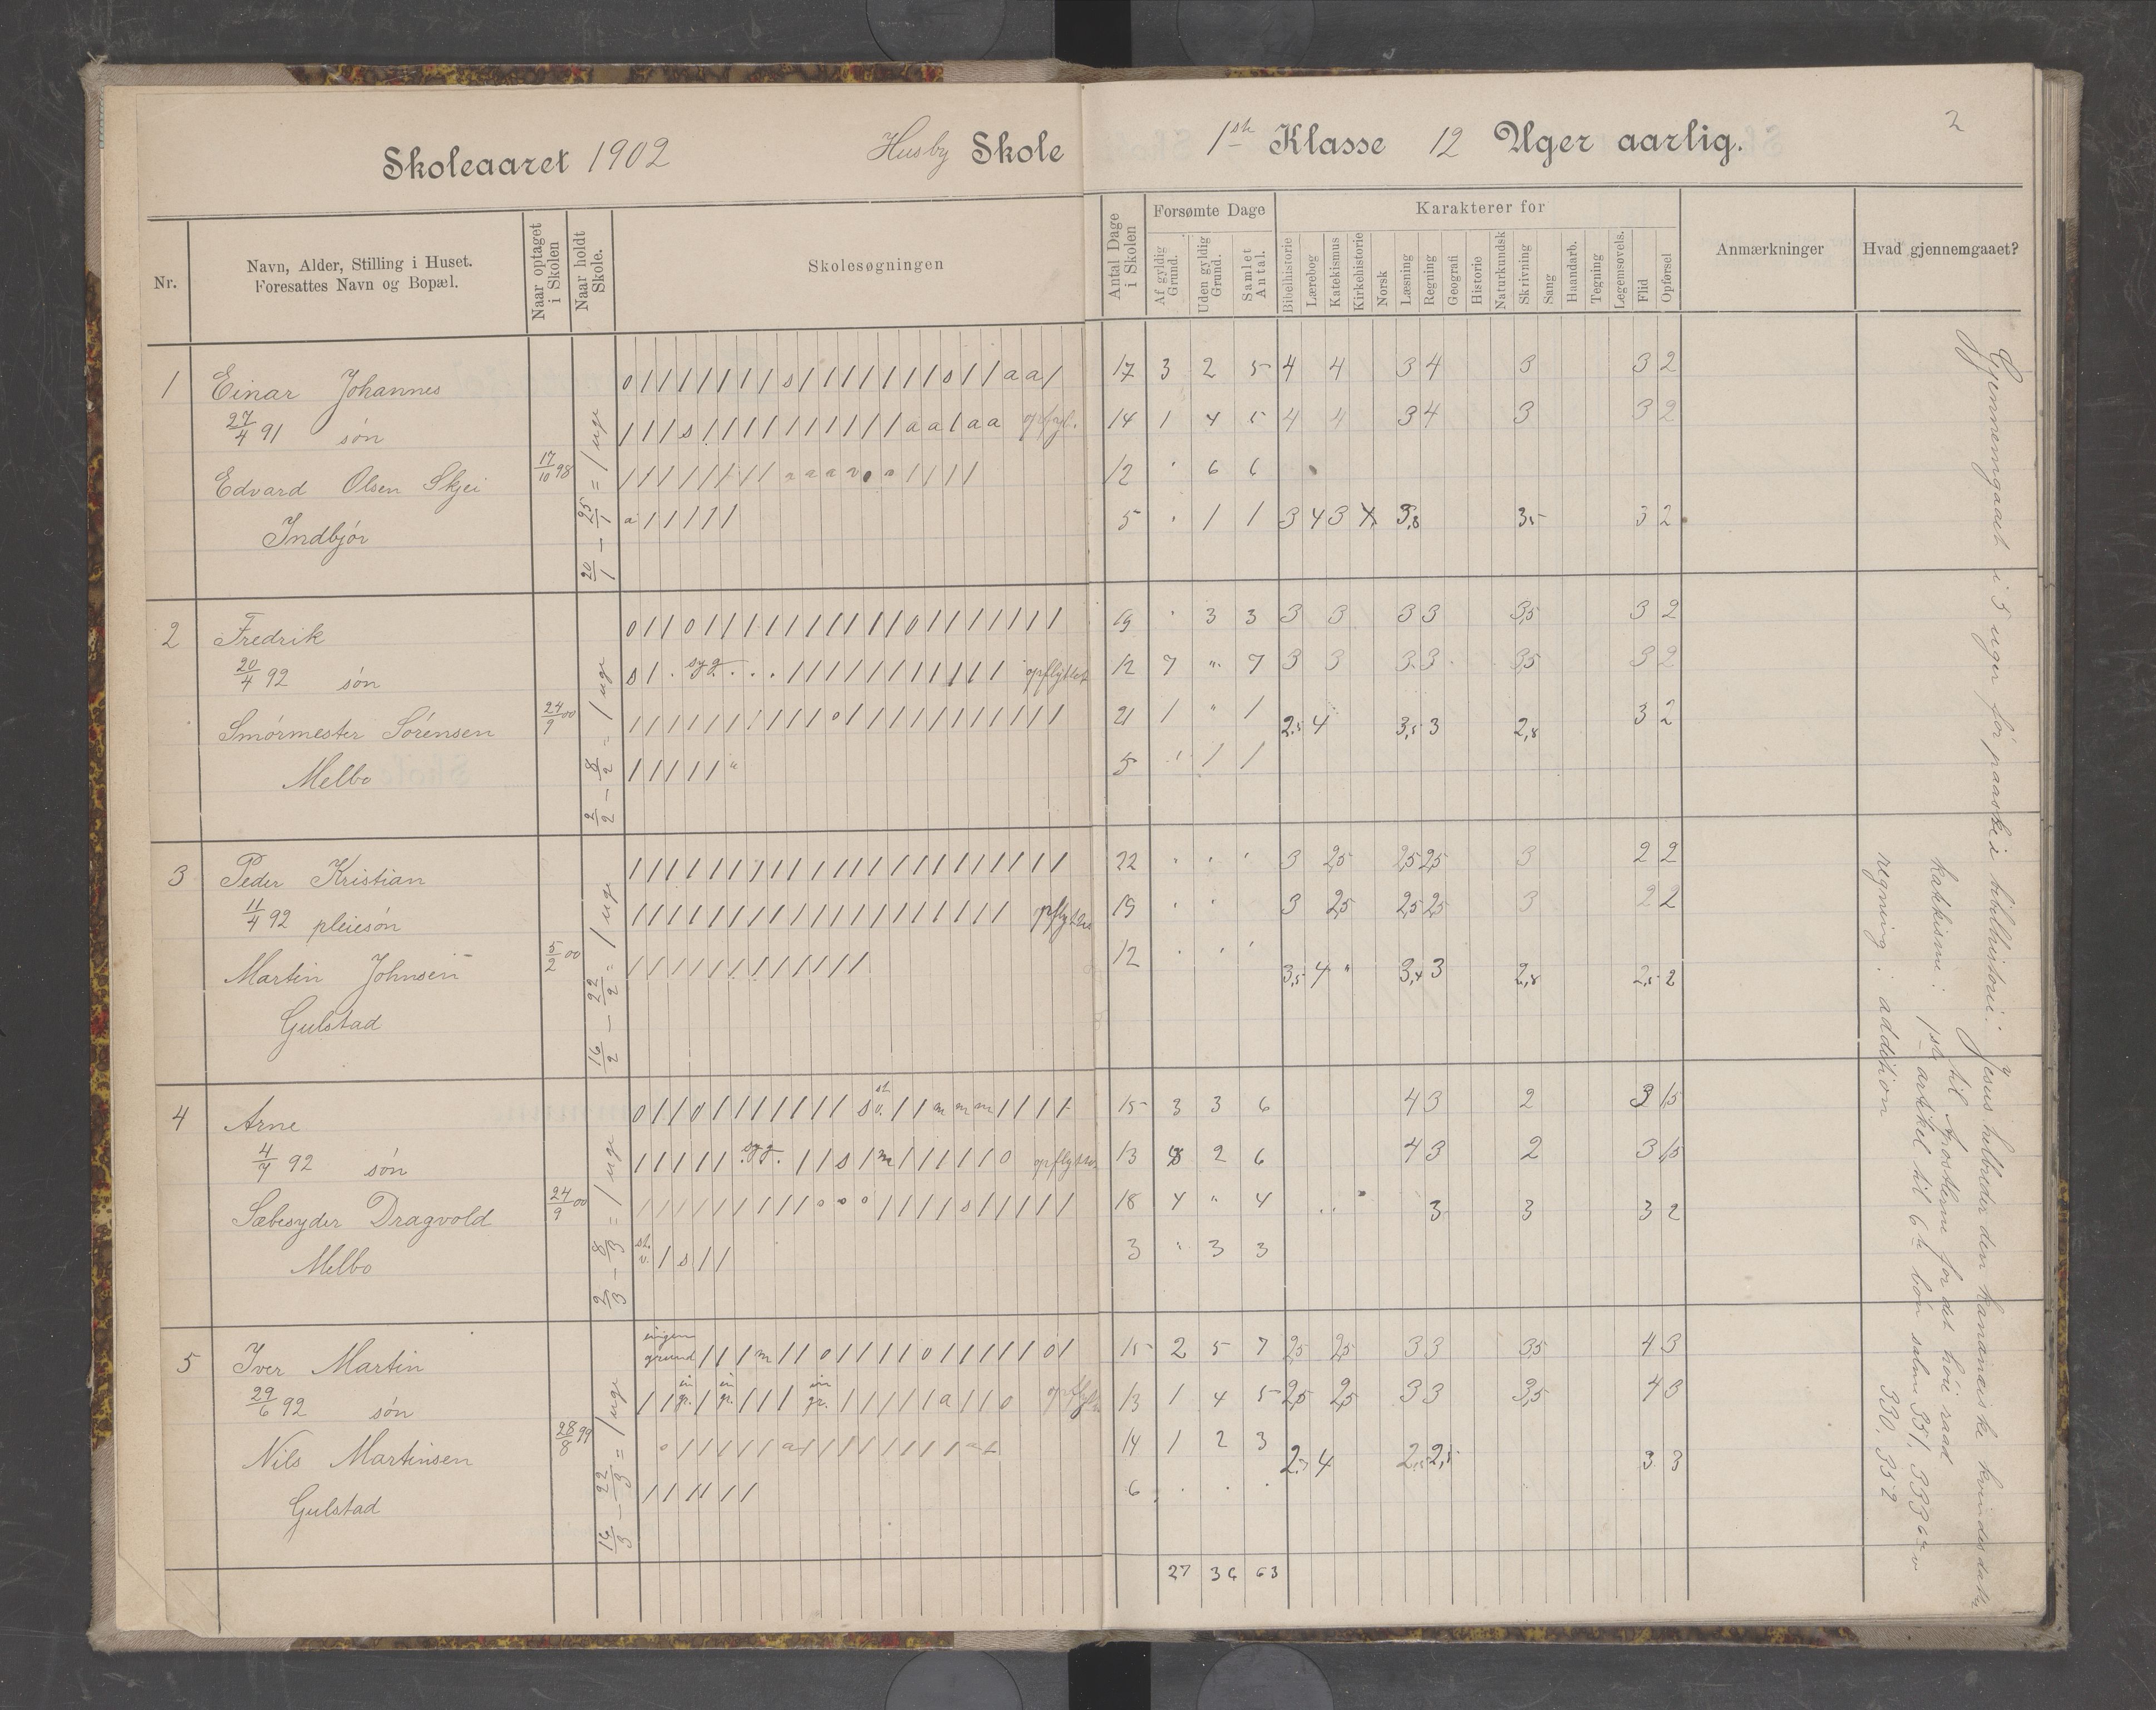 Skoleaaret 1902 Husby Skole 1ste Klasse 12 Uger aarlig.
2
Nr.
Navn, Alder, Stilling i Huset.
Foresattes Navn og Bopæl.
Naar optaget i Skolen
Naar holdt Skole.
Skolesøgningen
Antal Dage i Skolen
Forsømte Dage
Af gyldig Grund.
Uden gyldig Grund.
Samlet Antal.
Karakterer for
Bibelhistorie
Lærebog
Katekismus
Kirkehistorie
Norsk
Læsning
Regning
Geografi
Historie
Naturkundsk
Skrivning
Sang
Haandarb.
Tegning
Legemsøvels.
Flid
Opførsel
Anmærkninger
Hvad gjennemgaaet?
1 Einar Johannes 17 3 2 5 4 4 3 4 3 3 2
27/4 91 søn 14 1 4 5 4 4 3 4 3 3 2
Edvard Olsen Skjei 17/10 98 12 " 6 6
Indbjør 5 " 1 1 3 4 3 3 2
20/1 – 25/1 = 1 uge
2 Fredrik 19 " 3 3 3 3 3 3 3,5 3 2
20/4 92 søn syg. opflyttet 12 7 " 7 3 3 3 3 3,5 3 2
Smørmester Sørensen 24/9 00 21 1 " 1 2,5 4 3,5 3 2,8 3 2
Melbo 5 " 1 1
2/2 – 8/2 = 1 uge
3 Peder Kristian 22 " " " 3 2,5 2,5 2,5 3 2 2
11/4 92 pleiesøn opflyttes 19 " " 3 2,5 2,5 2,5 3 2 2
Martin Johnsen 5/2 00 12 " " " 3,5 4 " 3,4 3 2,8 2,5 2
Gulstad
16/2 – 22/2 = 1 uge
4 Arne 15 3 3 6 4 3 2 3 1,5
4/7 92 søn syg. opflyttes 13 2 6 4 3 2 3 1,5
Sæbesyder Dragvold 24/9 00 18 4 " 4 3 3 3 2
Melbo st. v. 3 " 3 3
2/3 – 8/3 = 1 uge
5 Iver Martin ingen grund 15 2 5 7 2,5 2,5 3 3 3,5 4 3
29/6 92 søn in gr. in gr. in gr. 13 1 4 5 2,5 2,5 3 3 3,5 4 3
Nils Martinsen 28/8 99 14 1 2 3 4 2,5 3 3
Gulstad 6
16/3 – 22/3 = 1 uge
27 36 63
Gjennemgaaet i 5 uger før paaske i bibelhistorie: Jesus helbreder den kananæiske kvindes datter
til Apostlene for det høie raad
katekisme: 1ste artikel til 6te bøn salme 351, 333 6te v
330, 352
regning: addition